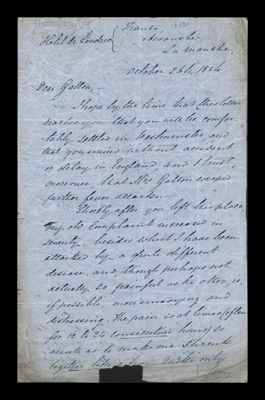 France
Hotel de Londres
Avranches
La Manche.
October 26th, 1854
Dear Galton,
I hope by the time that this letter
reaches you that you will be comfor-
tably settled in Westminster and
that you arrived without accident
or delay in England and I trust,
moreover, that Mrs Galton escaped
further fever attacks.
Shortly after you left this place,
my old complaint increased in
severity, besides which I have been
attacked by a quite different
disease, and though perhaps not
actually so painful as the other, is,
if possible, more annoying and
distressing. The pain is at times (often
for 12 to 24 consecutive hours) so
acute as to make one
together and the only